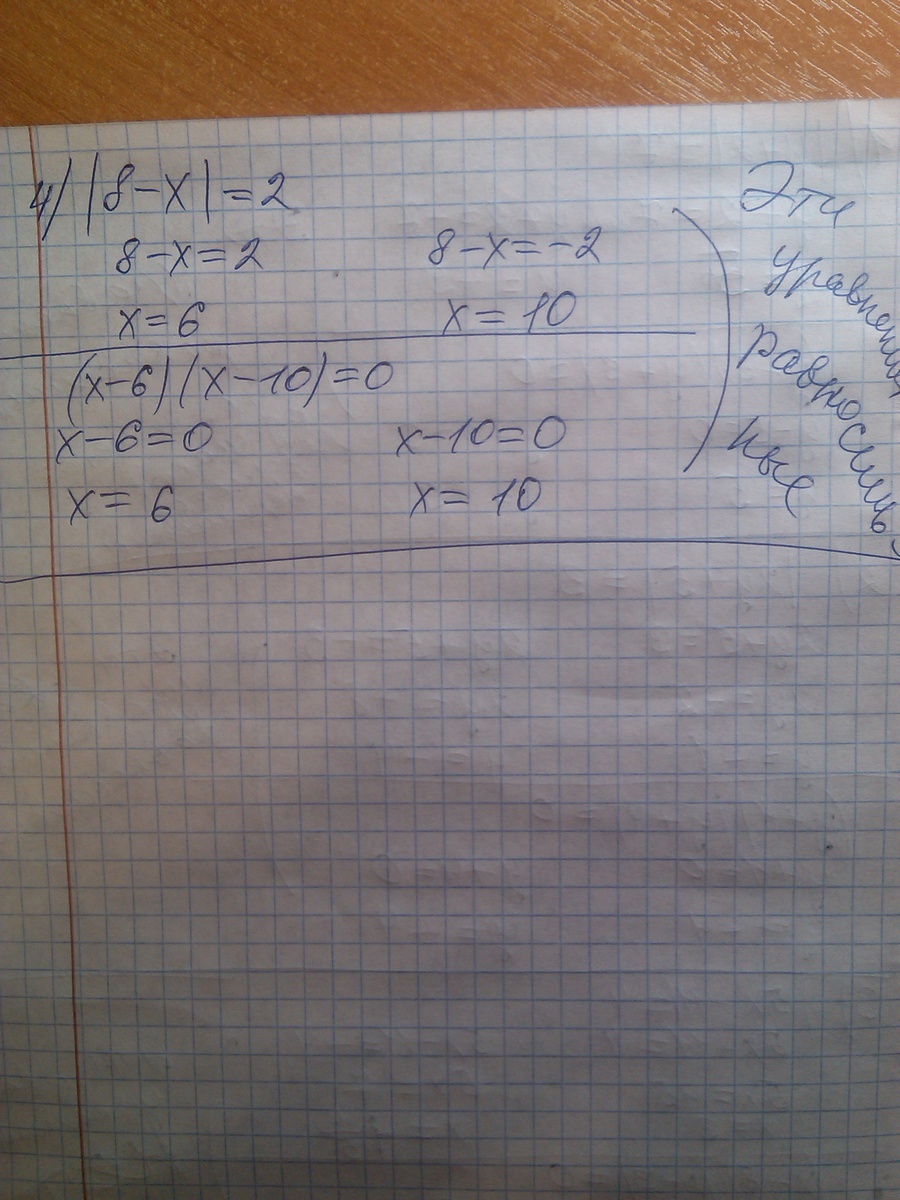 4) |8-x|=2
8-x=2 8-x=-2
x=6 x=10
(x-6)(x-10)=0
x-6=0 x-10=0
x=6 x=10
Эти
уравнения
равносиль-
ные